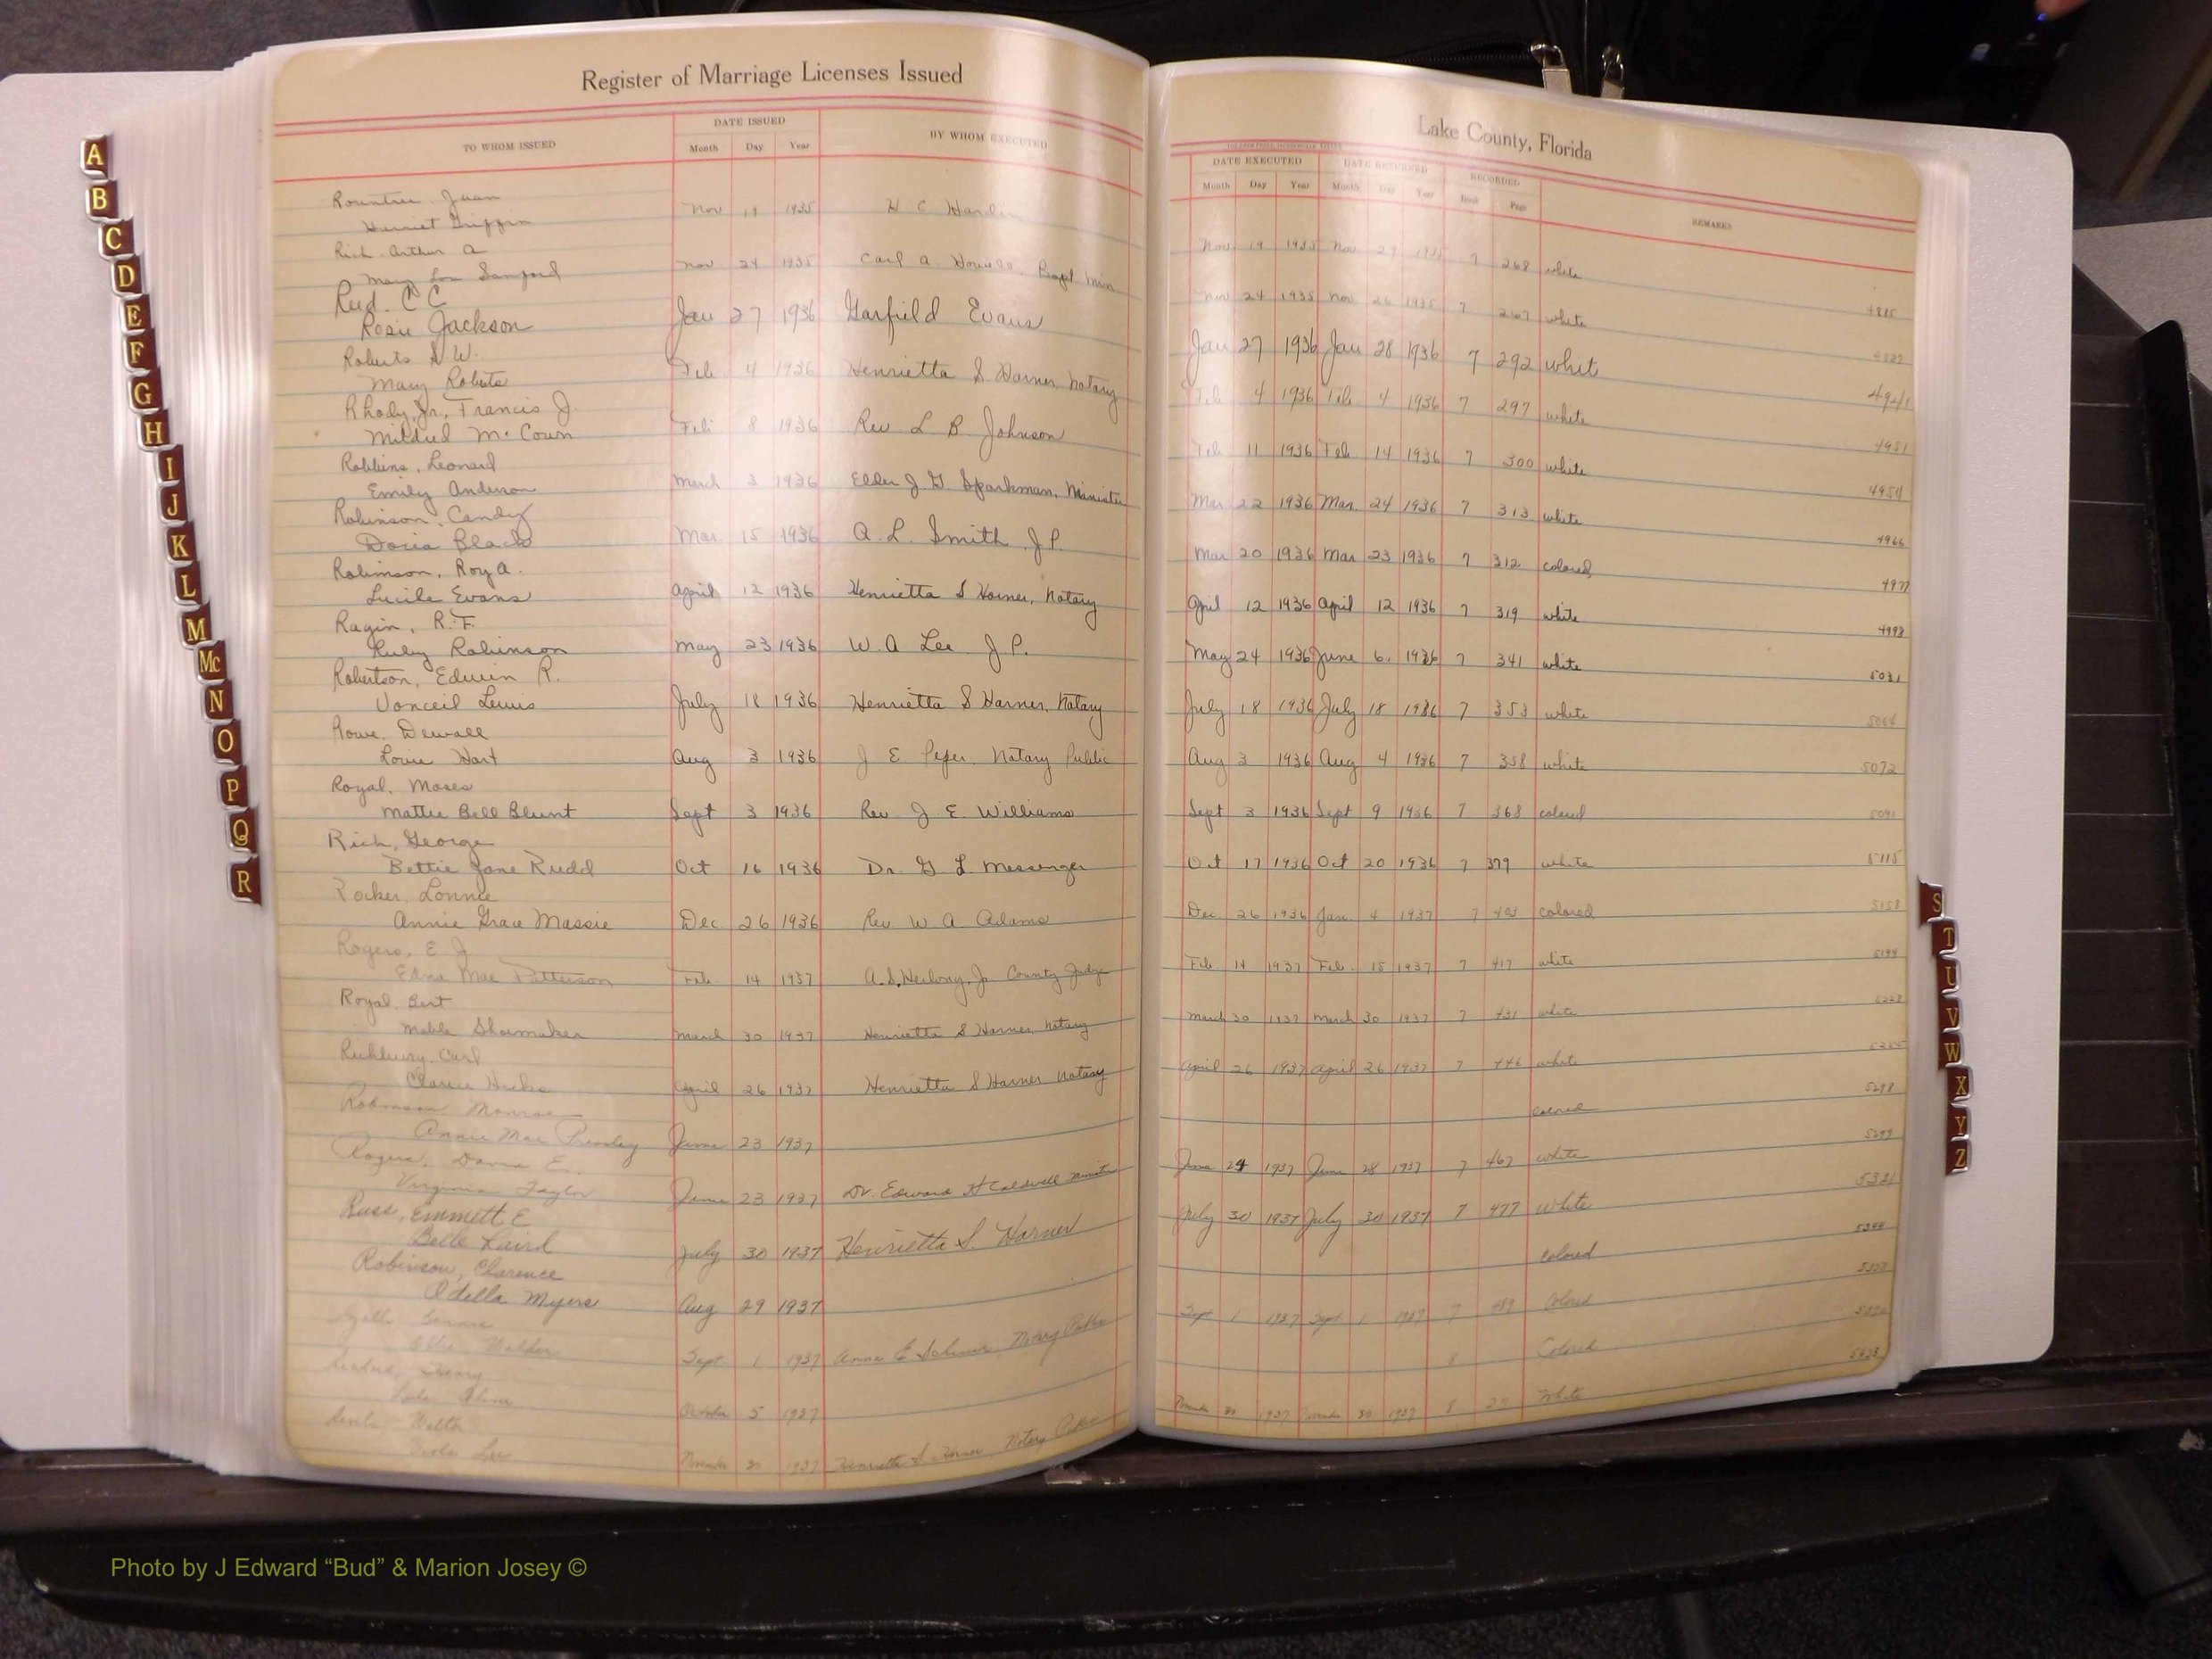 Register of Marriage Licenses Issued
Lake County, Florida
TO WHOM ISSUED
DATE ISSUED
Month Day Year
BY WHOM EXECUTED
DATE EXECUTED DATE RETURNED RECORDED
Month Day Year Month Day Year Book Page
REMARKS
Rountree Juan
Harriet Griffin Nov 19 1935 H C Hardin Nov 19 1935 Nov 27 1935 7 268 white
Rich Arthur A
Mary Lou Sanford Nov 24 1935 Carl A. Bapt Min Nov 24 1935 Nov 26 1935 7 267 white
Reed. C C
Rosie Jackson Jan 27 1936 Garfield Evans Jan 27 1936 Jan 28 1936 7 292 whit 4941
Roberts W.
Mary Roberts Feb 4 1936 Henrietta S Harner Notary Feb 4 1936 Feb 4 1936 7 297 white 4951
Rhody, Jr., Francis J.
Mildred McCown Feb 8 1936 Rev L B Johnson Feb 11 1936 Feb 14 1936 7 300 white 4954
Robbins, Leonard
Emily Anderson March 3 1936 Elder J. G. Sparkman, Minister Mar 22 1936 Mar. 24 1936 7 313 white 4966
Robinson, Candy
Doria Black Mar. 15 1936 A. L. Smith J P. Mar 20 1936 Mar 23 1936 7 312 colored 4977
Robinson, Roy A.
Lucile Evans April 12 1936 Henrietta S Harner, Notary April 12 1936 April 12 1936 7 319 white 4998
Ragin, R. F.
Ruby Robinson May 23 1936 W. A Lee J P. May 24 1936 June 6, 1936 7 341 white 5031
Robertson, Edwin R.
Vonceil Lewis July 18 1936 Henrietta S Harner, Notary July 18 1936 July 18 1936 7 353 white 5064
Rowe, Dewall
Louie Hart Aug 3 1936 J E Peper, Notary Public Aug 3 1936 Aug 4 1936 7 358 white 5072
Royal, Moses
Mattie Bell Blunt Sept 3 1936 Rev. J E. Williams Sept 3 1936 Sept 9 1936 7 368 colored 5091
Rich, George
Bettie Jane Rudd Oct 16 1936 Dr. G L Messenger Oct 17 1936 Oct 20 1936 7 379 white 5115
Rocker, Lonnie
Annie Grace Massie Dec 26 1936 Rev W A Adams Dec. 26 1936 Jan. 4 1937 7 403 colored 5158
Rogers, E J
Edna Mae Patterson Feb. 14 1937 County Judge Feb 14 1937 Feb. 15 1937 7 417 white 5194
Royal. Bert
Mable Shoemaker March 30 1937 Henrietta S Harner, Notary March 30 1937 March 30 1937 7 431 white 5228
Richbury, Carl
Clarice Hicks April 26 1937 Henrietta S Harner Notary April 26 1937 April 26 1937 7 446 white
Robinson Monroe
Annie Mae Presley June 23 1937 colored 5298
Rogers,
Virginia Taylor June 23 1937 Dr. Edward H Caldwell Minister June 24 1937 June 28 1937 7 467 white 5299
Russ, Emmett E
Belle Laird July 30 1937 Henrietta S. Harner July 30 1937 July 30 1937 7 477 White 5321
Robinson, Clarence
Odella Myers Aug 29 1937 colored 5344
Sept. 1 1937 Anna E Notary Public Sept 1 1937 Sept 1 1937 7 Colored
October 5 1937 8 Colored
Walter
Viola November 30 1937 Henrietta S. Harner Notary Public November 30 1937 November 30 1937 8 White
A
B
C
D
E
F
G
H
I
J
K
L
M
Mc
N
O
P
Q
R
S
T
U
V
W
X
Y
Z
Photo by J Edward “Bud” & Marion Josey ©